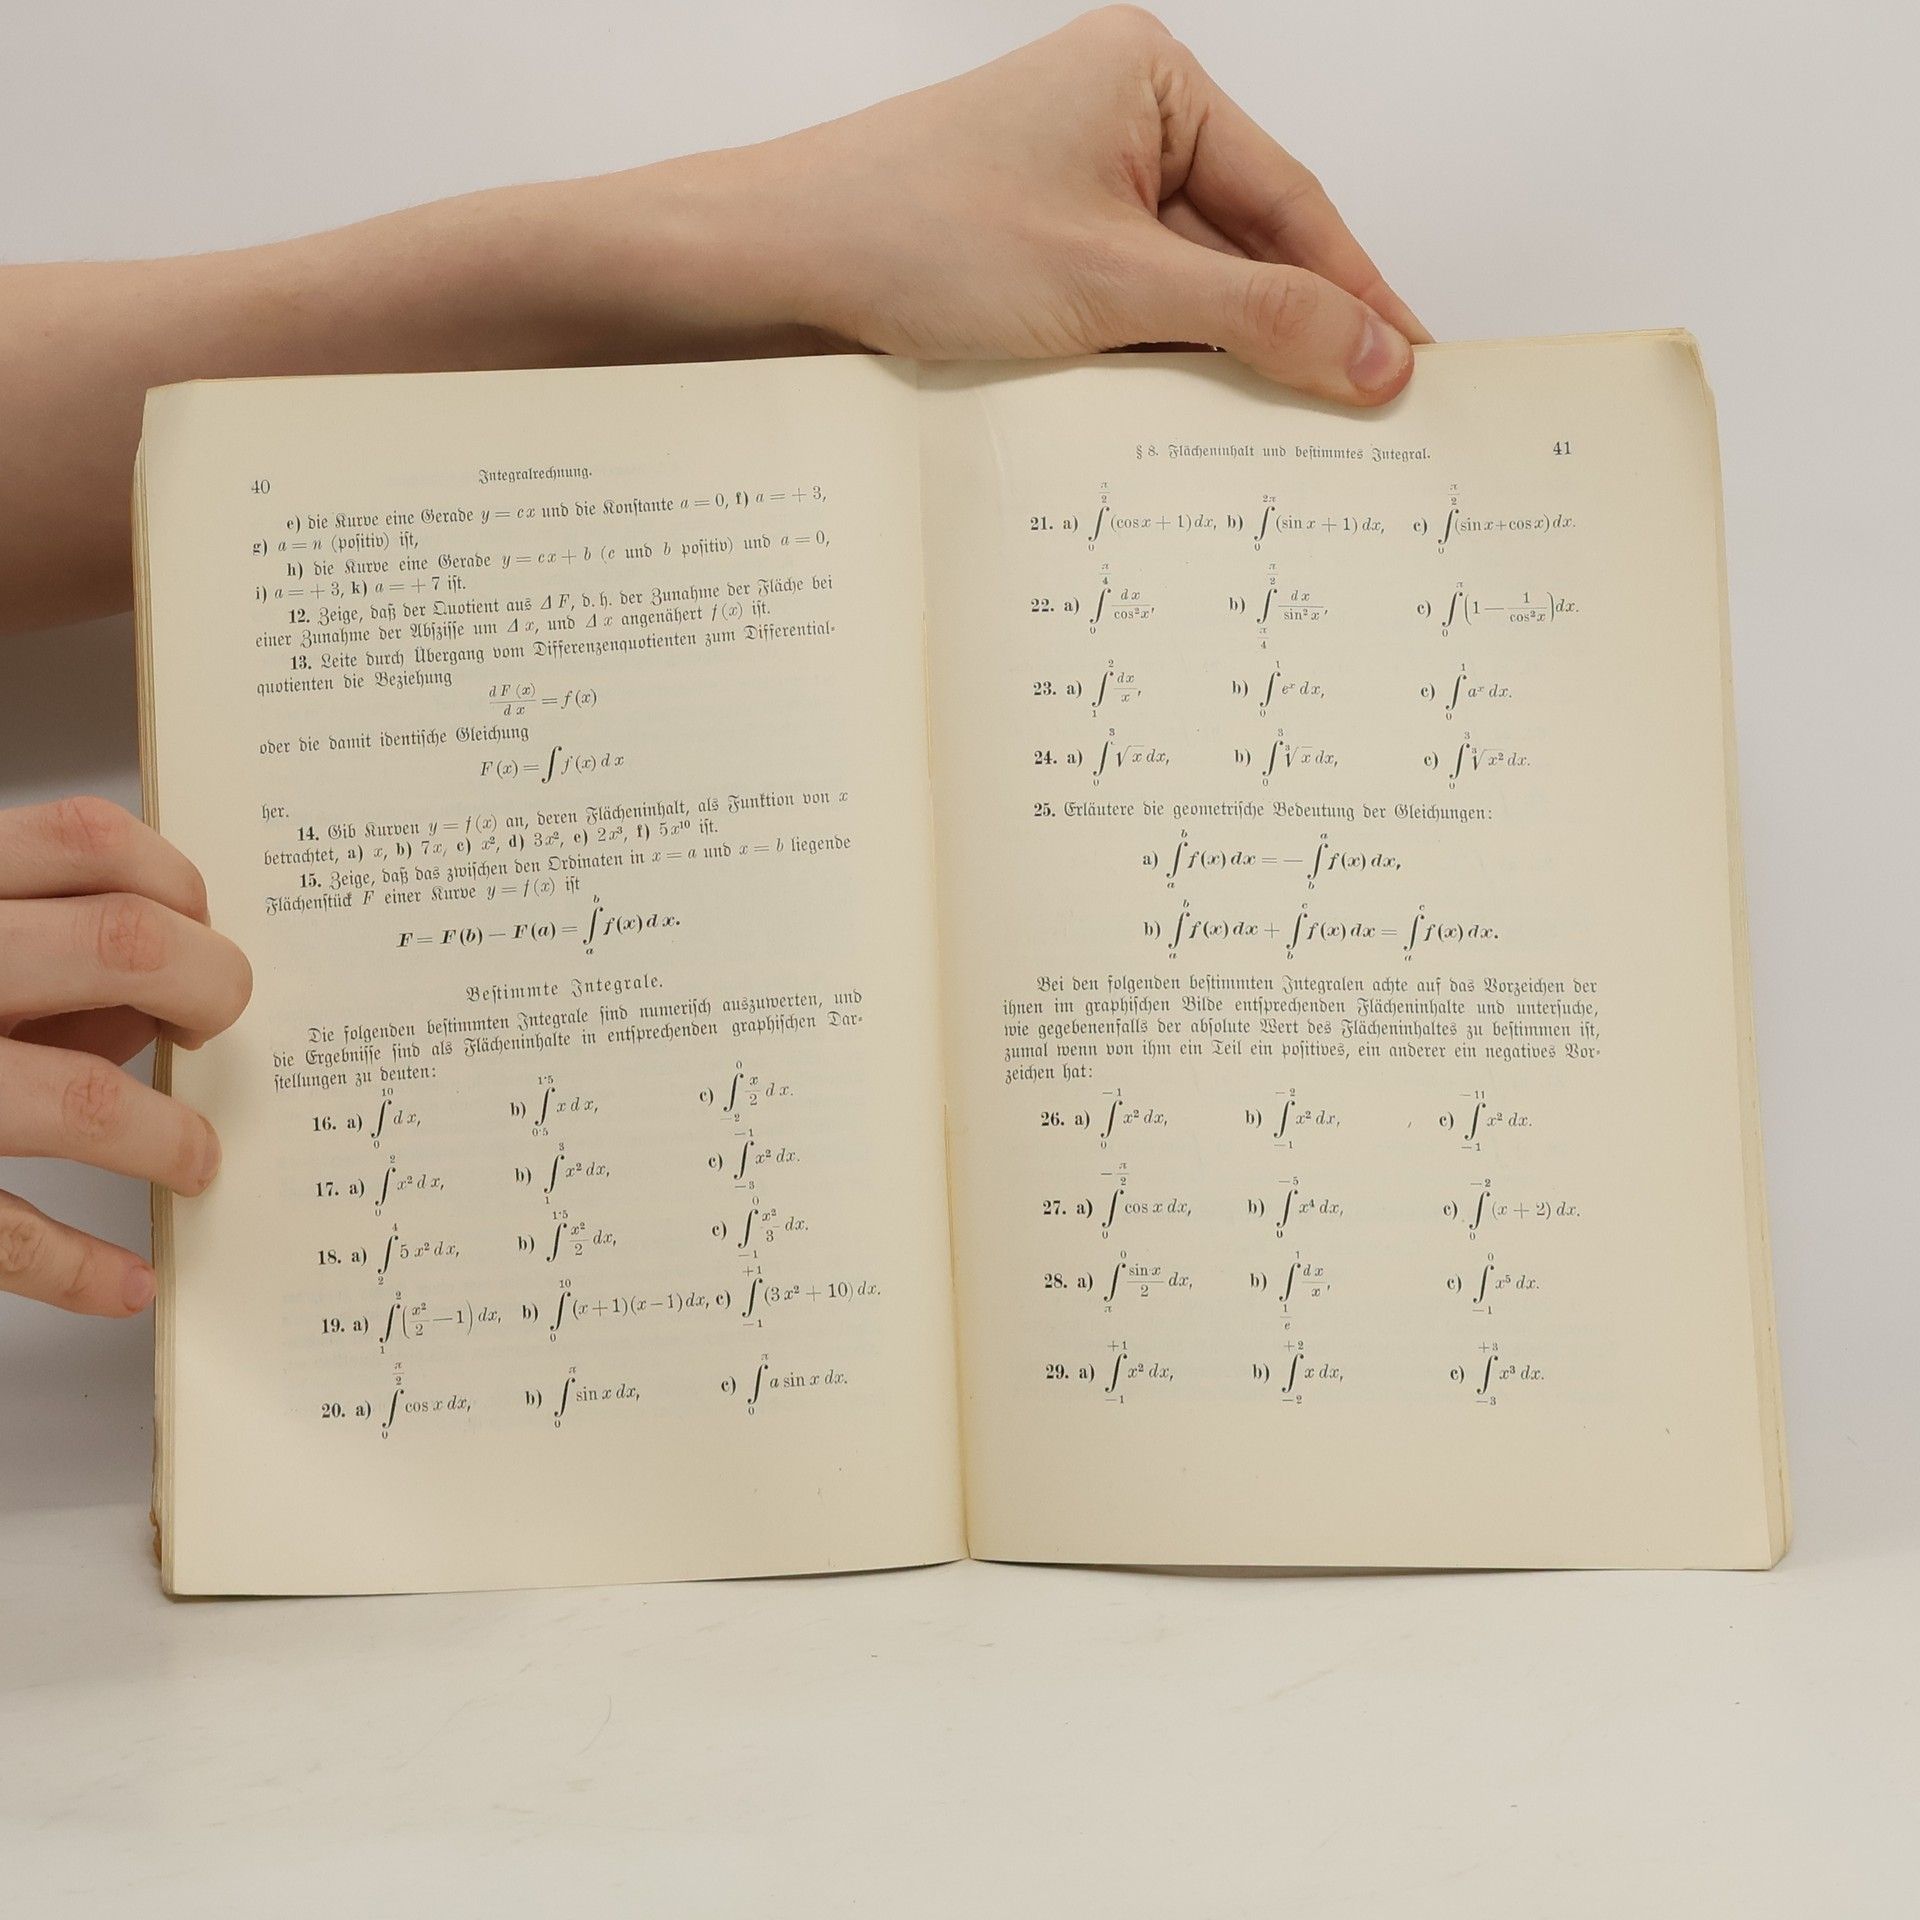 40
Integralrechnung.
e) die Kurve eine Gerade y = cx und die Konstante a = 0, f) a = + 3,
g) a = n (positiv) ist,
h) die Kurve eine Gerade y = cx + b (c und b positiv) und a = 0,
i) a = + 3, k) a = + 7 ist.
12. Zeige, daß der Quotient aus Δ F, d. h. der Zunahme der Fläche bei
einer Zunahme der Abszisse um Δ x, und Δ x angenähert f (x) ist.
13. Leite durch Übergang vom Differenzenquotienten zum Differential-
quotienten die Beziehung
d F (x) / d x = f (x)
oder die damit identische Gleichung
F (x) = ∫ f (x) d x
her.
14. Gib Kurven y = f (x) an, deren Flächeninhalt, als Funktion von x
betrachtet, a) x, b) 7x, c) x², d) 3x², e) 2x³, f) 5x¹⁰ ist.
15. Zeige, daß das zwischen den Ordinaten in x = a und x = b liegende
Flächenstück F einer Kurve y = f (x) ist
F = F(b) — F(a) = ∫_a^b f(x) d x.
Bestimmte Integrale.
Die folgenden bestimmten Integrale sind numerisch auszuwerten, und
die Ergebnisse sind als Flächeninhalte in entsprechenden graphischen Dar-
stellungen zu deuten:
16. a) ∫_0^10 d x, b) ∫_0·5^1·5 x d x, c) ∫_—2^0 x/2 d x.
17. a) ∫_0^2 x² d x, b) ∫_1^3 x² dx, c) ∫_—3^—1 x² dx.
18. a) ∫_2^4 5 x² d x, b) ∫^1·5 x²/2 dx, c) ∫_—1^0 x²/3 dx.
19. a) ∫_1^2 (x²/2 — 1) dx, b) ∫_0^10 (x + 1) (x — 1) dx, c) ∫_—1^+1 (3 x² + 10) dx.
20. a) ∫_0^π/2 cos x dx, b) ∫_0^π sin x dx, c) ∫_0^π a sin x dx.
§ 8. Flächeninhalt und bestimmtes Integral.
41
21. a) ∫_0^π/2 (cos x + 1) dx, b) ∫_0^2π (sin x + 1) dx, c) ∫_0^π/2 (sin x + cos x) dx.
22. a) ∫_0^π/4 dx/cos² x, b) ∫_π/4^π/2 dx/sin² x, c) ∫_0^π (1 — 1/cos² x) dx.
23. a) ∫_1^2 dx/x, b) ∫_0^1 eˣ dx, c) ∫_0^1 aˣ dx.
24. a) ∫_0^3 √x dx, b) ∫_0^3 ∛x dx, c) ∫_0^3 ∛x² dx.
25. Erläutere die geometrische Bedeutung der Gleichungen:
a) ∫_a^b f(x) dx = — ∫_b^a f(x) dx,
b) ∫_a^b f(x) dx + ∫_b^c f(x) dx = ∫_a^c f(x) dx.
Bei den folgenden bestimmten Integralen achte auf das Vorzeichen der
ihnen im graphischen Bilde entsprechenden Flächeninhalte und untersuche,
wie gegebenenfalls der absolute Wert des Flächeninhaltes zu bestimmen ist,
zumal wenn von ihm ein Teil ein positives, ein anderer ein negatives Vor-
zeichen hat:
26. a) ∫_0^—1 x² dx, b) ∫_—1^—2 x² dx, c) ∫_—1^—11 x² dx.
27. a) ∫_0^—π/2 cos x dx, b) ∫_0^—5 x⁴ dx, c) ∫_0^—2 (x + 2) dx.
28. a) ∫_π^0 sin x/2 dx, b) ∫_1/e^1 dx/x, c) ∫_—1^0 x⁵ dx.
29. a) ∫_—1^+1 x² dx, b) ∫_—2^+2 x dx, c) ∫_—3^+3 x³ dx.